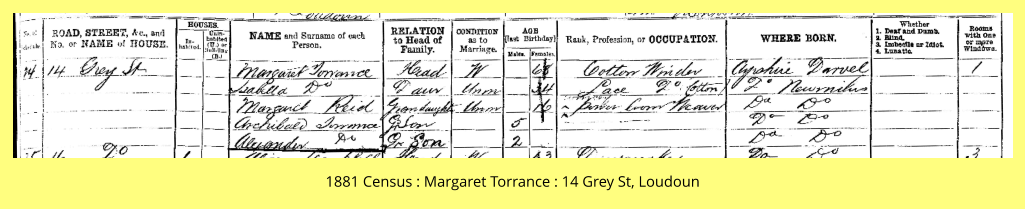 Loudoun
No. of Schedule. ROAD, STREET, &c., and No. or NAME of HOUSE. HOUSES. Inhabited. Uninhabited (U.) or Building (B.) NAME and Surname of each Person. RELATION to Head of Family. CONDITION as to Marriage. AGE (last Birthday) Males. Females. Rank, Profession, or OCCUPATION. WHERE BORN. Whether 1. Deaf and Dumb. 2. Blind. 3. Imbecile or Idiot. 4. Lunatic. Rooms with One or more Windows.
74 14 Grey St Margaret Torrance Head W 68 Cotton Winder Ayrshire Darvel 1
Isabella Do Daur Unm 34 Lace Do Cotton Do Newmilns
Margaret Reid Grandaughtr Unm 16 Power Loom Weaver Do Do
Archibald Torrance Gr Son 5 Do Do
Alexander Do Gr Son 2 Do Do
Do 3
1881 Census : Margaret Torrance : 14 Grey St, Loudoun